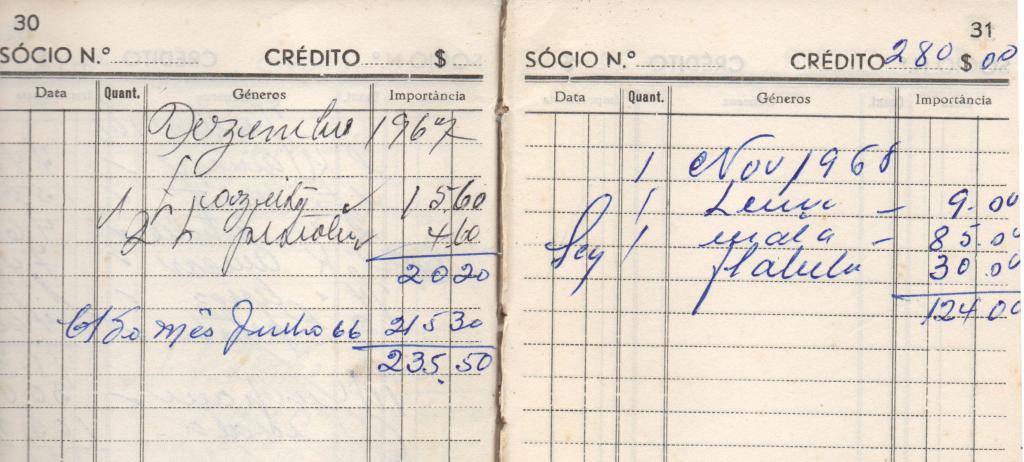 30
SÓCIO N.º CRÉDITO $
Data Quant. Géneros Importância
Dezembro 1967
1 L 15.60
2 L petróleo 4.60
20 20
do mês Junho 66 215 30
235.50
31
SÓCIO N.º CRÉDITO 280 $ 00
Data Quant. Géneros Importância
1 Nov 1968
1 9.00
1 mala 85.00
30.00
124 00